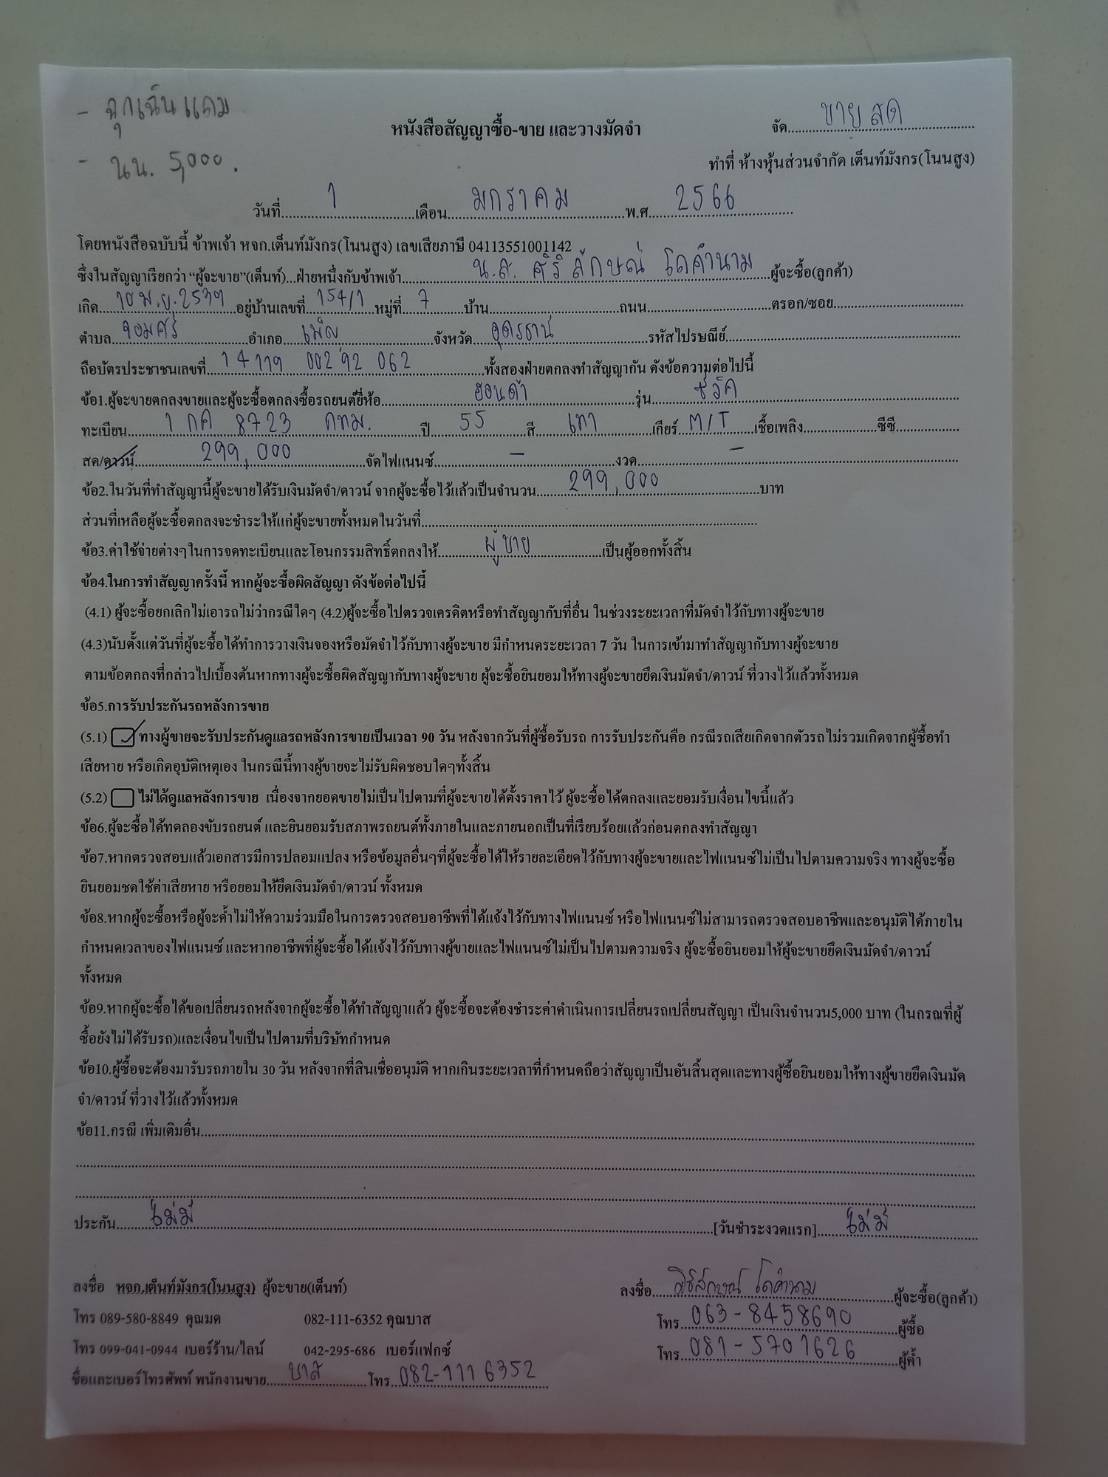 - ฉุกเฉินแถม
- นน. 5,000.
หนังสือสัญญาซื้อ-ขาย และวางมัดจำ
จัด ขายสด
ทำที่ ห้างหุ้นส่วนจำกัด เต็นท์มังกร(โนนสูง)
วันที่ 1 เดือน มกราคม พ.ศ. 2566
โดยหนังสือฉบับนี้ ข้าพเจ้า หจก.เต็นท์มังกร(โนนสูง) เลขเสียภาษี 04113551001142
ซึ่งในสัญญาเรียกว่า "ผู้จะขาย"(เต็นท์)...ฝ่ายหนึ่งกับข้าพเจ้า น.ส. ศิริลักษณ์ โถคำนาม ผู้จะซื้อ(ลูกค้า)
เกิด 10 พ.ย. 2539 อยู่บ้านเลขที่ 154/1 หมู่ที่ 7 บ้าน ถนน ตรอก/ซอย
ตำบล จอมศรี อำเภอ เพ็ญ จังหวัด อุดรธานี รหัสไปรษณีย์
ถือบัตรประชาชนเลขที่ 1 4119 00292 062 ทั้งสองฝ่ายตกลงทำสัญญากัน ดังข้อความต่อไปนี้
ข้อ1.ผู้จะขายตกลงขายและผู้จะซื้อตกลงซื้อรถยนต์ยี่ห้อ ฮอนด้า รุ่น ซีวิค
ทะเบียน 1 กค 8723 กทม. ปี 55 สี เทา เกียร์ M/T เชื้อเพลิง ซีซี
สด/ดาวน์ 299,000 จัดไฟแนนซ์ - งวด -
ข้อ2.ในวันที่ทำสัญญานี้ผู้จะขายได้รับเงินมัดจำ/ดาวน์ จากผู้จะซื้อไว้แล้วเป็นจำนวน 299,000 บาท
ส่วนที่เหลือผู้จะซื้อตกลงจะชำระให้แก่ผู้จะขายทั้งหมดในวันที่
ข้อ3.ค่าใช้จ่ายต่างๆในการจดทะเบียนและโอนกรรมสิทธิ์ตกลงให้ ผู้ขาย เป็นผู้ออกทั้งสิ้น
ข้อ4.ในการทำสัญญาครั้งนี้ หากผู้จะซื้อผิดสัญญา ดังข้อต่อไปนี้
(4.1) ผู้จะซื้อยกเลิกไม่เอารถไม่ว่ากรณีใดๆ (4.2)ผู้จะซื้อไปตรวจเครดิตหรือทำสัญญากับที่อื่น ในช่วงระยะเวลาที่มัดจำไว้กับทางผู้จะขาย
(4.3)นับตั้งแต่วันที่ผู้จะซื้อได้ทำการวางเงินจองหรือมัดจำไว้กับทางผู้จะขาย มีกำหนดระยะเวลา 7 วัน ในการเข้ามาทำสัญญากับทางผู้จะขาย
ตามข้อตกลงที่กล่าวไปเบื้องต้นหากทางผู้จะซื้อผิดสัญญากับทางผู้จะขาย ผู้จะซื้อยินยอมให้ทางผู้จะขายยึดเงินมัดจำ/ดาวน์ ที่วางไว้แล้วทั้งหมด
ข้อ5.การรับประกันรถหลังการขาย
(5.1) ทางผู้ขายจะรับประกันดูแลรถหลังการขายเป็นเวลา 90 วัน หลังจากวันที่ผู้ซื้อรับรถ การรับประกันคือ กรณีรถเสียเกิดจากตัวรถ ไม่รวมเกิดจากผู้ซื้อทำ
เสียหาย หรือเกิดอุบัติเหตุเอง ในกรณีนี้ทางผู้ขายจะไม่รับผิดชอบใดๆทั้งสิ้น
(5.2) ไม่ได้ดูแลหลังการขาย เนื่องจากยอดขายไม่เป็นไปตามที่ผู้จะขายได้ตั้งราคาไว้ ผู้จะซื้อได้ตกลงและยอมรับเงื่อนไขนี้แล้ว
ข้อ6.ผู้จะซื้อได้ทดลองขับรถยนต์ และยินยอมรับสภาพรถยนต์ทั้งภายในและภายนอกเป็นที่เรียบร้อยแล้วก่อนตกลงทำสัญญา
ข้อ7.หากตรวจสอบแล้วเอกสารมีการปลอมแปลง หรือข้อมูลอื่นๆที่ผู้จะซื้อได้ให้รายละเอียดไว้กับทางผู้จะขายและไฟแนนซ์ไม่เป็นไปตามความจริง ทางผู้จะซื้อ
ยินยอมชดใช้ค่าเสียหาย หรือยอมให้ยึดเงินมัดจำ/ดาวน์ ทั้งหมด
ข้อ8.หากผู้จะซื้อหรือผู้จะค้ำไม่ให้ความร่วมมือในการตรวจสอบอาชีพที่ได้แจ้งไว้กับทางไฟแนนซ์ หรือไฟแนนซ์ไม่สามารถตรวจสอบอาชีพและอนุมัติได้ภายใน
กำหนดเวลาของไฟแนนซ์ และหากอาชีพที่ผู้จะซื้อได้แจ้งไว้กับทางผู้ขายและไฟแนนซ์ไม่เป็นไปตามความจริง ผู้จะซื้อยินยอมให้ผู้จะขายยึดเงินมัดจำ/ดาวน์
ทั้งหมด
ข้อ9.หากผู้จะซื้อได้ขอเปลี่ยนรถหลังจากผู้จะซื้อได้ทำสัญญาแล้ว ผู้จะซื้อจะต้องชำระค่าดำเนินการเปลี่ยนรถเปลี่ยนสัญญา เป็นเงินจำนวน5,000 บาท (ในกรณที่ผู้
ซื้อยังไม่ได้รับรถ)และเงื่อนไขเป็นไปตามที่บริษัทกำหนด
ข้อ10.ผู้ซื้อจะต้องมารับรถภายใน 30 วัน หลังจากที่สินเชื่ออนุมัติ หากเกินระยะเวลาที่กำหนดถือว่าสัญญาเป็นอันสิ้นสุดและทางผู้ซื้อยินยอมให้ทางผู้ขายยึดเงินมัด
จำ/ดาวน์ ที่วางไว้แล้วทั้งหมด
ข้อ11.กรณี เพิ่มเติมอื่น
ประกัน ไม่มี [วันชำระงวดแรก] ไม่มี
ลงชื่อ หจก.เต็นท์มังกร(โนนสูง) ผู้จะขาย(เต็นท์) ลงชื่อ ศิริลักษณ์ โถคำนาม ผู้จะซื้อ(ลูกค้า)
โทร 089-580-8849 คุณมด 082-111-6352 คุณบาส โทร 063-8458690 ผู้ซื้อ
โทร 099-041-0944 เบอร์ร้าน/ไลน์ 042-295-686 เบอร์แฟกซ์ โทร 081-5701626 ผู้ค้ำ
ชื่อและเบอร์โทรศัพท์ พนักงานขาย บาส โทร 082-111 6352